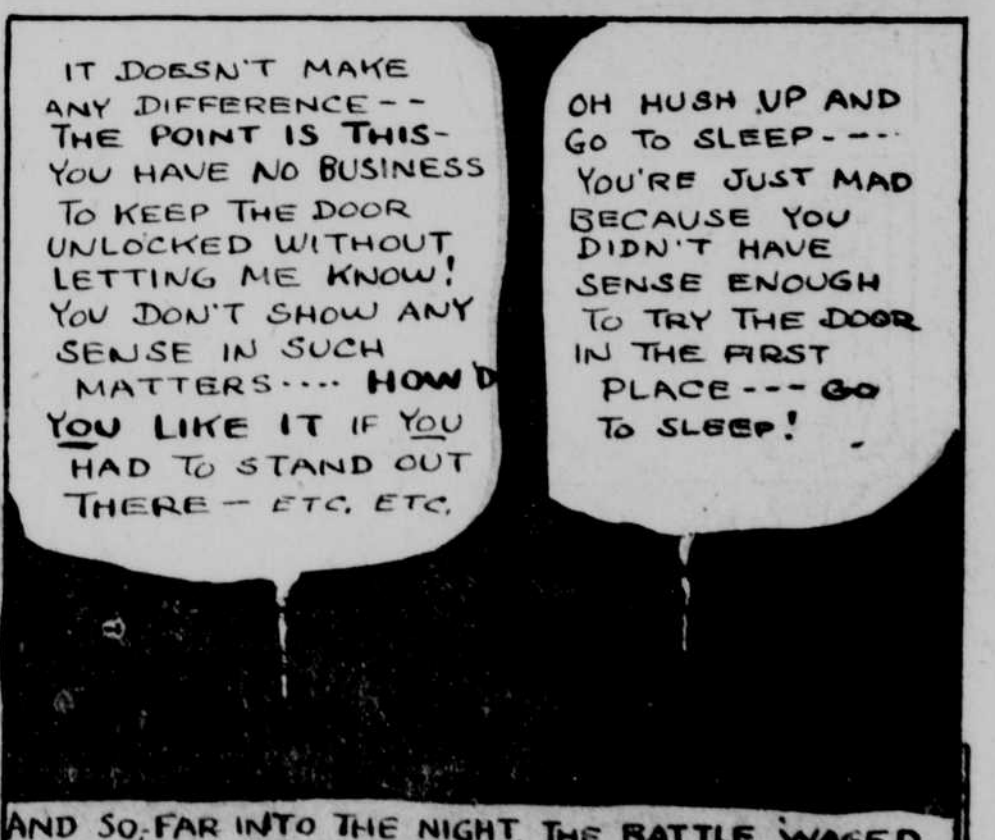 IT DOESN'T MAKE
ANY DIFFERENCE--
THE POINT IS THIS-
YOU HAVE NO BUSINESS
TO KEEP THE DOOR
UNLOCKED WITHOUT
LETTING ME KNOW!
YOU DON'T SHOW ANY
SENSE IN SUCH
MATTERS.... HOW'D
YOU LIKE IT IF YOU
HAD TO STAND OUT
THERE - ETC. ETC.
OH HUSH UP AND
GO TO SLEEP----
YOU'RE JUST MAD
BECAUSE YOU
DIDN'T HAVE
SENSE ENOUGH
TO TRY THE DOOR
IN THE FIRST
PLACE--- GO
TO SLEEP!
AND SO, FAR INTO THE NIGHT THE BATTLE WAGED